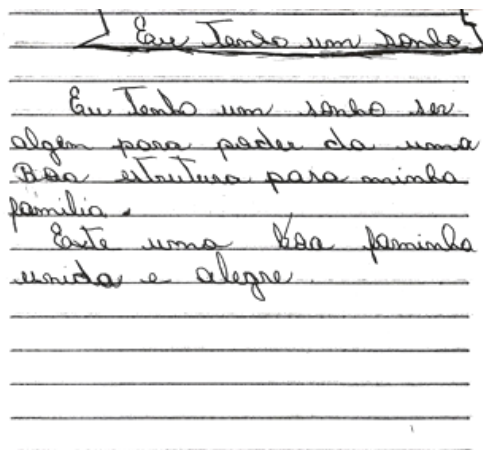 Eu Tenho um sonho
Eu Tenho um sonho ser
algem para poder da uma
Boa estrutura para minha
familia.
Este uma boa faminha
unida e alegre.